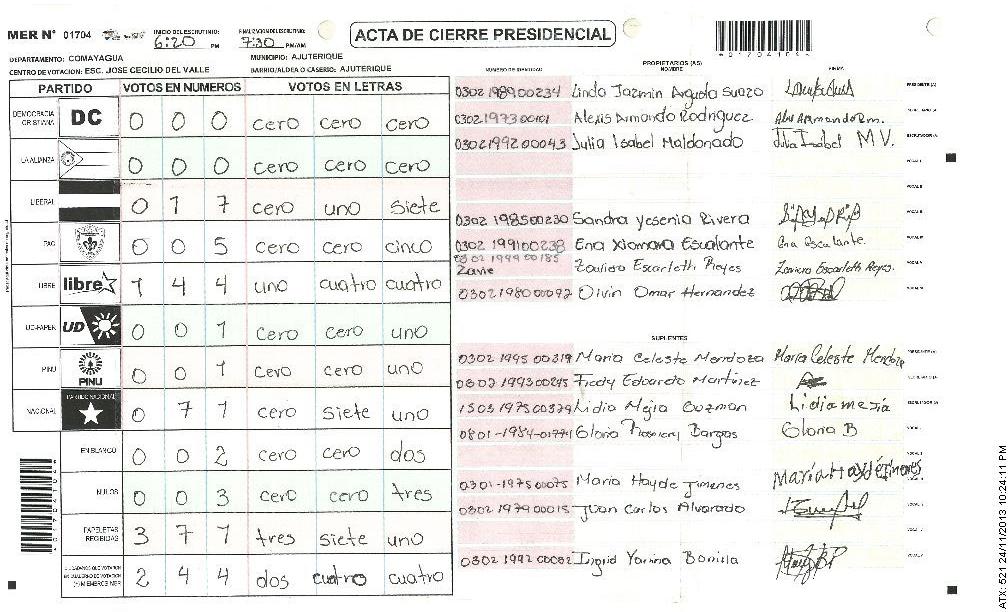 MER N° 01704 INICIO DEL ESCRUTINIO: 6:20 PM FINALIZACION DEL ESCRUTINIO: 7:30 PM/AM ACTA DE CIERRE PRESIDENCIAL
DEPARTAMENTO: COMAYAGUA MUNICIPIO: AJUTERIQUE
CENTRO DE VOTACION: ESC. JOSE CECILIO DEL VALLE BARRIO/ALDEA O CASERIO: AJUTERIQUE
PARTIDO VOTOS EN NUMEROS VOTOS EN LETRAS
DEMOCRACIA CRISTIANA DC 0 0 0 cero cero cero
LA ALIANZA 0 0 0 cero cero cero
LIBERAL 0 1 7 cero uno siete
PAC 0 0 5 cero cero cinco
LIBRE libre 1 4 4 uno cuatro cuatro
UD-FAPER UD 0 0 1 cero cero uno
PINU PINU 0 0 1 cero cero uno
NACIONAL PARTIDO NACIONAL 0 7 1 cero siete uno
EN BLANCO 0 0 2 cero cero dos
NULOS 0 0 3 cero cero tres
PAPELETAS RECIBIDAS 3 7 1 tres siete uno
CIUDADANOS QUE VOTARON EN CUADERNO DE VOTACION (+) MIEMBROS MER 2 4 4 dos cuatro cuatro
PROPIETARIOS (AS)
NUMERO DE IDENTIDAD NOMBRE FIRMA
0302 198900234 Linda Jazmin Argueta Suazo PRESIDENTE (A)
0302 197300101 Alexis Armando Rodriguez SECRETARIO (A)
0302 199200043 Julia Isabel Maldonado Julia Isabel M.V. ESCRUTADOR (A)
VOCAL I
VOCAL II
0302 198500230 Sandra Yesenia Rivera
0302 199100238 Ena Xiomara Escalante Ena Escalante
0302 1999 00185 Escarleth Reyes Escarleth Reyes
0302 1980 00092 Olvin Omar Hernandez
SUPLENTES
0302 1995 00319 Maria Celeste Mendoza Maria Celeste Mendoza PRESIDENTE (A)
199300245 Fredy Edoardo Martinez SECRETARIO (A)
1503 197500379 Lidia Mejia Guzman Lidia mejia ESCRUTADOR (A)
0801-1984-01771 Gloria Bargas Gloria B
0301-197500075 Maria Hayde Jimenes Maria Hayde Jimenes
0302 197900015 Juan Carlos Alvarado
0302 199200002 Ingrid Yanina Bonilla
ATX: 521 24/11/2013 10:24:11 PM